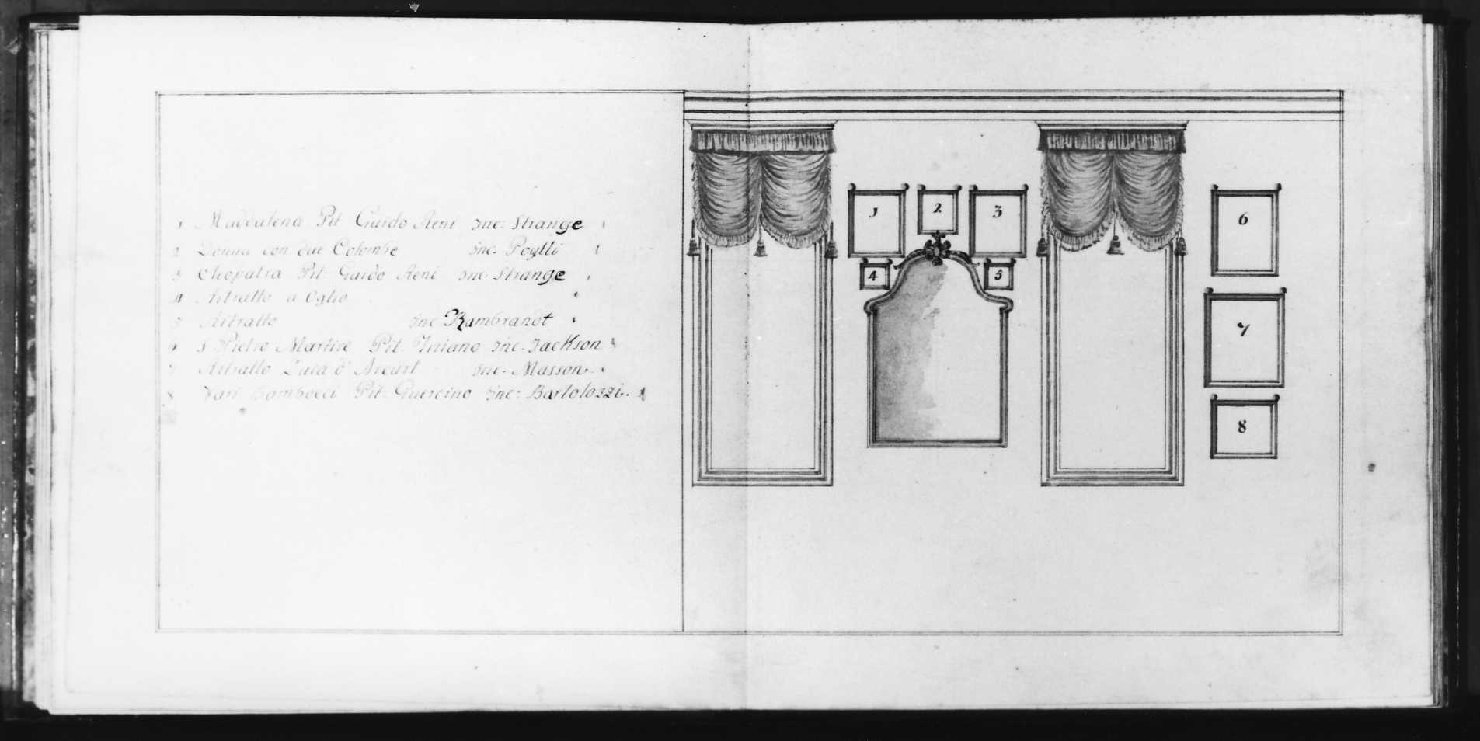 1 Maddalena Pit Guido Reni Inc. Strange 1
2 Donna con due Colombe Inc. Poylli 1
3 Cleopatra Pit Guido Reni Inc Strange
4 Ritratto a Oglio
5 Ritratto Inc Rambrandt
6 S Pietro Martire Pit. Tiziano Inc. Jackson
7 Ritratto Inc. Masson
8 Pit. Guercino Inc. Bartolozzi
1 2 3
4 5
6
7
8